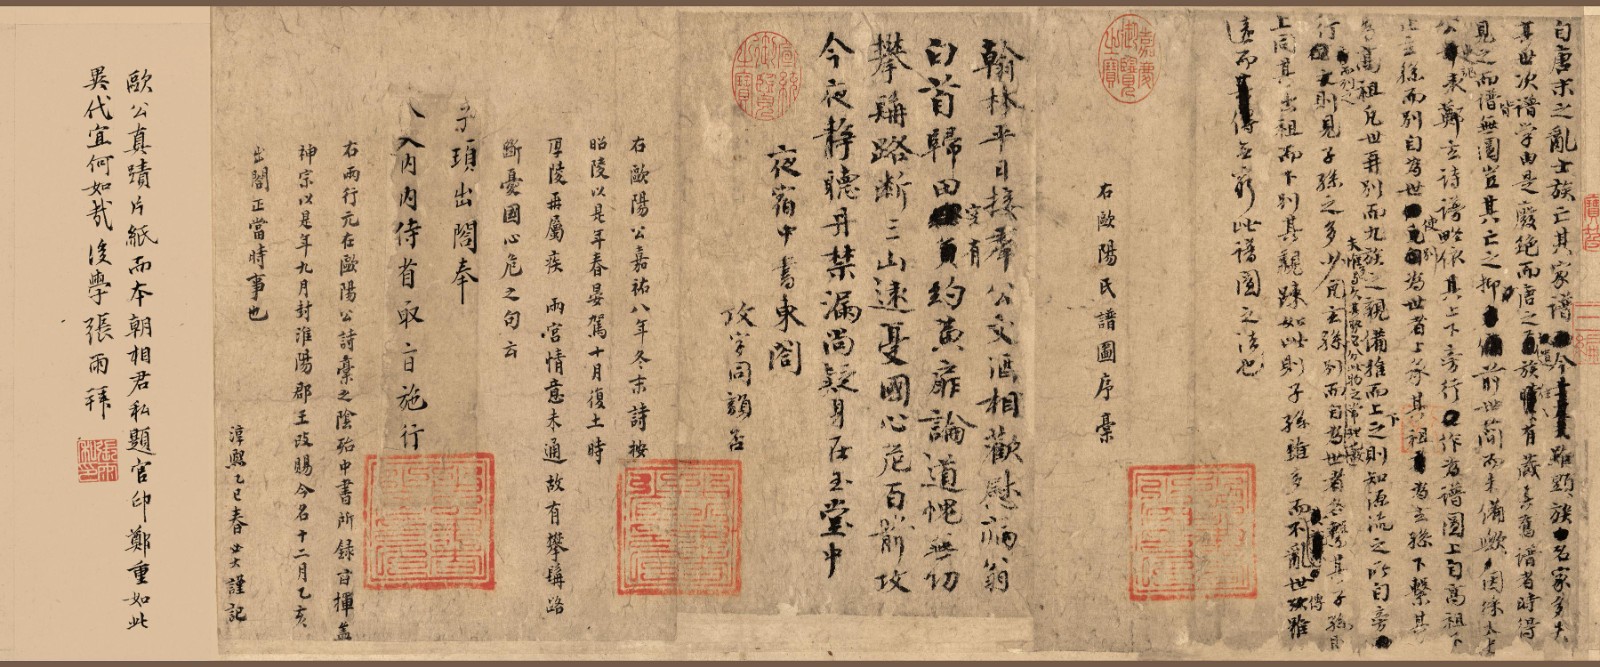 自唐末之亂士族亡其家譜今雖顯族名家多失
其世次譜學由是廢絕而唐之遺族往往有藏其舊譜者時得
見之而譜皆無圖豈其亡之抑前世簡而未備歟因採太史
公史記表鄭玄詩譜略依其上下旁行作為譜圖上自高祖下
止玄孫而別自為世使別為世者上承其祖為玄孫下繫其
孫為高祖凡世再別而九族之親備推而上之則知源流之所自旁
行而列之則見子孫之多少夫惟多與久其勢必分此物之常理也凡玄孫別而自為世者各繫其子孫則
上同其出祖而下別其親疎如此則子孫雖多而不亂世傳雖
遠而無窮此譜圖之法也
右歐陽氏譜圖序稾
嘉慶御覽之寶
翰林平日接羣公文酒相歡慰病翁
白首歸田空有約黃扉論道愧無功
攀髯路斷三山遠憂國心危百箭攻
今夜靜聽丹禁漏尚疑身在玉堂中
夜宿中書東閤
攻字同韻否
宣統御覽之寶
右歐陽公嘉祐八年冬末詩按
昭陵以是年春晏駕十月復土時
厚陵再屬疾 兩宮情意未通故有攀髯路
斷憂國心危之句云
頊出閤奉
入內內侍省取旨施行
右兩行元在歐陽公詩稾之陰殆中書所錄旨揮蓋
神宗以是年九月封淮陽郡王改賜今名十二月乙亥
出閤正當時事也
淳熙乙巳春 謹記
歐公真蹟片紙而本朝相君私題官印鄭重如此
異代宜何如哉後學張雨拜